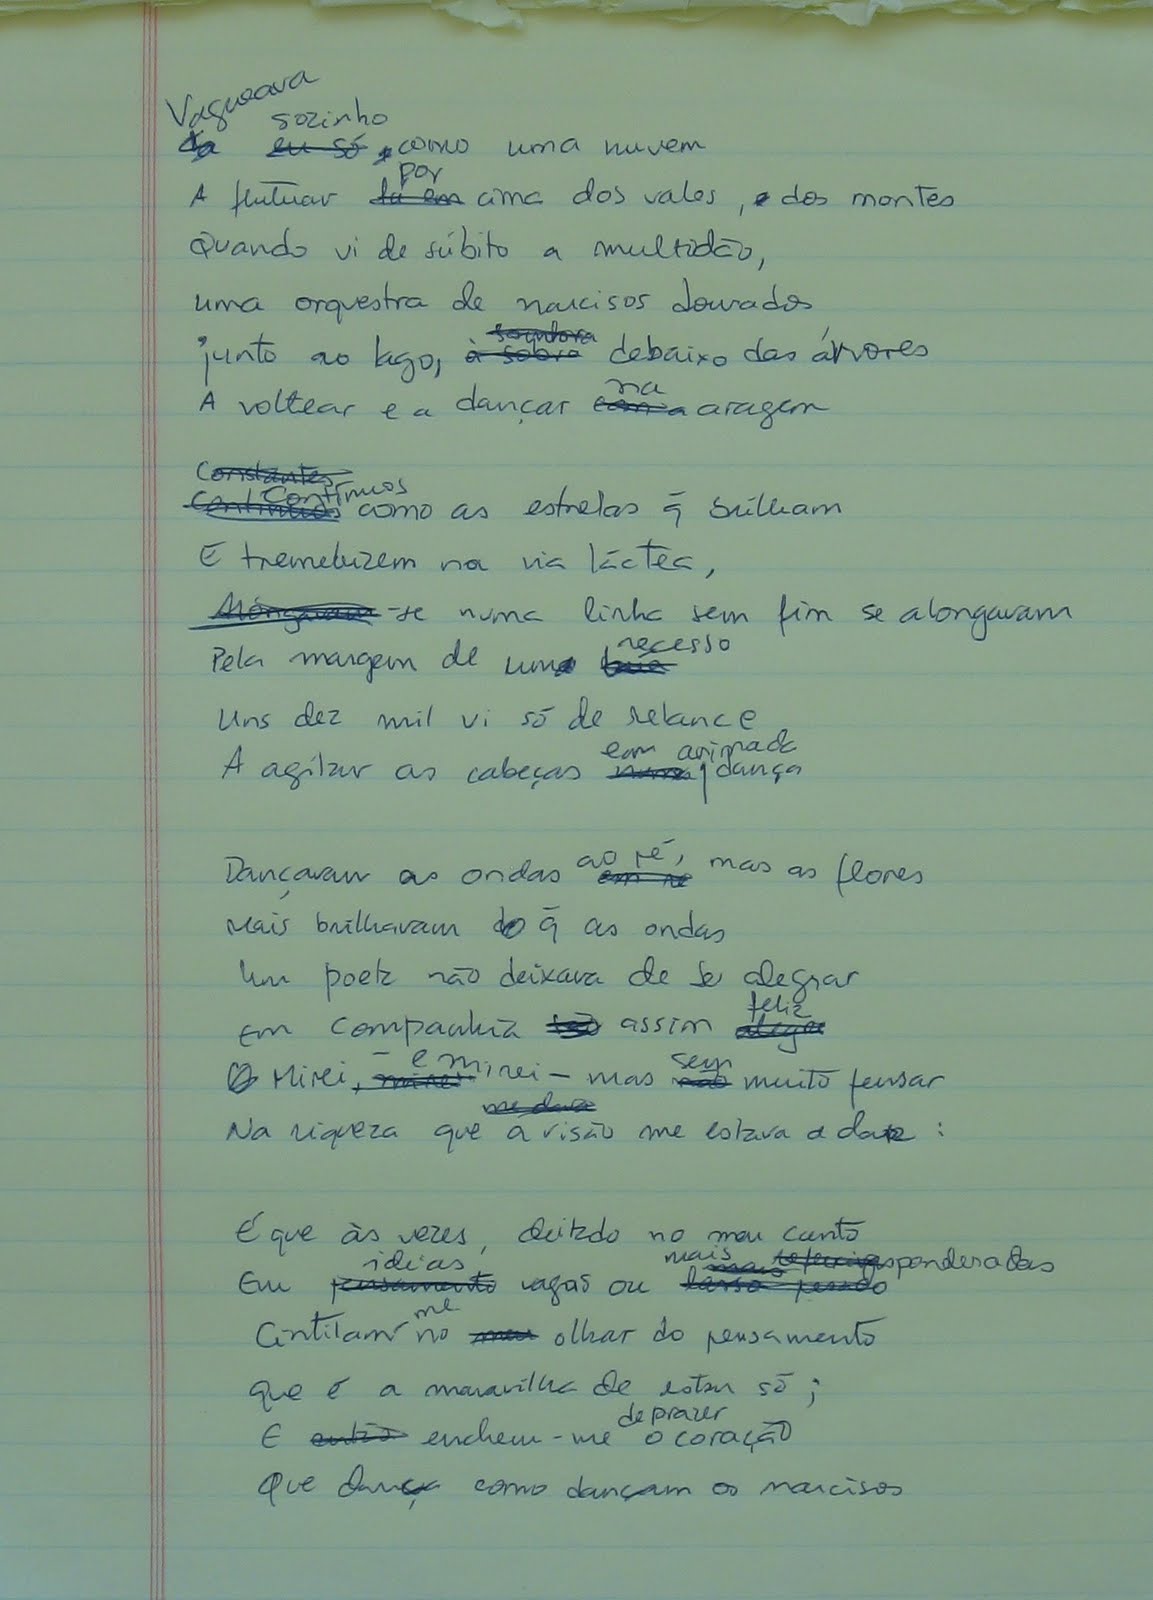 Vagueava
sozinho
Ia eu só, como uma nuvem
por
A flutuar lá em cima dos vales, e dos montes
Quando vi de súbito a multidão,
uma orquestra de narcisos dourados
junto ao lago, à sobra debaixo das árvores
na
A voltear e a dançar com a aragem
Constantes
Contínuos
Contínuos como as estrelas q̃ brilham
E tremeluzem na via láctea,
Alongavam-se numa linha sem fim se alongavam
recesso
Pela margem de uma baía
Uns dez mil vi só de relance
em animada
A agitar as cabeças numa dança
ao pé,
Dançavam as ondas mas as flores
Mais brilhavam do q̃ as ondas
Um poeta não deixava de se alegrar
feliz
Em companhia tão assim alegre
– e sem
Mirei, mirei mirei – mas não muito pensar
me dava
Na riqueza que a visão me estava a dar:
É que às vezes, deitado no meu canto
ideias mais ponderadas
Em pensamento vagas ou
me
Cintilam no meu olhar do pensamento
que é a maravilha de estar só;
de prazer
E então enchem-me o coração
Que dança como dançam os narcisos